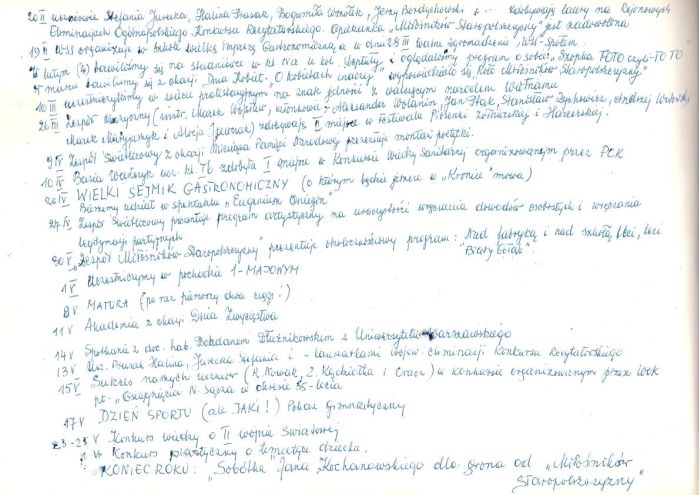 20 II uczniowie Stefania Jurecka, Halina Prusak, Bogumiła Woźniak, Jerzy Berdychowski + zdobywają laury na Rejonowych
Eliminacjach Ogólnopolskiego Konkursu Recytatorskiego. Opiekunka „Miłośników Staropolszczyzny" jest zadowolona
19 II WSS organizuje w szkole wielką imprezę Gastronomiczną a w dniu 28 III walne zgromadzenie „WSS - Społem"
w lutym bawiliśmy się na studniówce w kl. IV a i oglądaliśmy program o sobie: „Szopka FOTO czyli - TO TO
W marcu bawiliśmy się z okazji „Dnia Kobiet". O kobietach inaczej" wypowiadało się „Koło Miłośników Staropolszczyzny"
10 III uczestniczyliśmy w wiecu protestacyjnym na znak jedności z walczącym narodem Wietnamu
26 III Zespół Muzyczny (instr. Marek Wójsław, członkowie - Aleksander Wolanin, Jan Ptak, Stanisław
Marek i Alicja zdobywają II miejsce w Festiwalu Piosenki Żołnierskiej i Harcerskiej.
9 IV Zespół Świetlicowy z okazji Miesiąca Pamięci Narodowej prezentuje montaż poetycki.
10 IV Basia ucz. kl. Tb zdobyła I miejsce w Konkursie Wiedzy Sanitarnej organizowanym przez PCK
20 IV WIELKI SEJMIK GASTRONOMICZNY (o którym będzie jeszcze w „Kronice" mowa)
Bierzemy udział w spektaklu „Eugeniusz Oniegin"
27 IV Zespół Świetlicowy prezentuje program artystyczny na uroczystości wręczania dowodów osobistych i wręczania
legitymacji partyjnych
30 IV „Zespół Miłośników Staropolszczyzny" prezentuje okolicznościowy program: „Nad fabryką i nad szkołą leci, leci
Biały Gołąb"
1 V Uczestniczymy w pochodzie 1-MAJOWYM
8 V MATURA (po raz pierwszy dwa ciągi!)
11 V Akademia z okazji Dnia Zwycięstwa
14 V Spotkania z doc. hab. Bohdanem Dłużnikowskim z Uniwersytetu Warszawskiego
13 V Ucz. Prusak Halina, Jurecka Stefania i - laureatkami wojew. eliminacji Konkursu Recytatorskiego
15 V Sukces naszych uczniów (R. Nowak, Z. i w konkursie organizowanym przez WDK
pt. „Osiągnięcia N. Sącza w okresie 35-lecia
17 V DZIEŃ SPORTU (ale JAKI!) Pokaz Gimnastyczny
23-25 V Konkurs wiedzy o II wojnie Światowej
1 VI Konkurs plastyczny o tematyce dziecka.
KONIEC ROKU: „Sobótka Jana Kochanowskiego dla grona od „Miłośników
Staropolszczyzny"